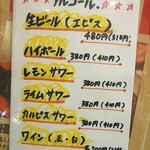 アルコール。
生ビール(エビス)
480円(518円)
ハイボール
380円(410円)
レモンサワー
380円(410円)
ライムサワー
380円(410円)
カルピスサワー
380円(410円)
ワイン(赤・白)